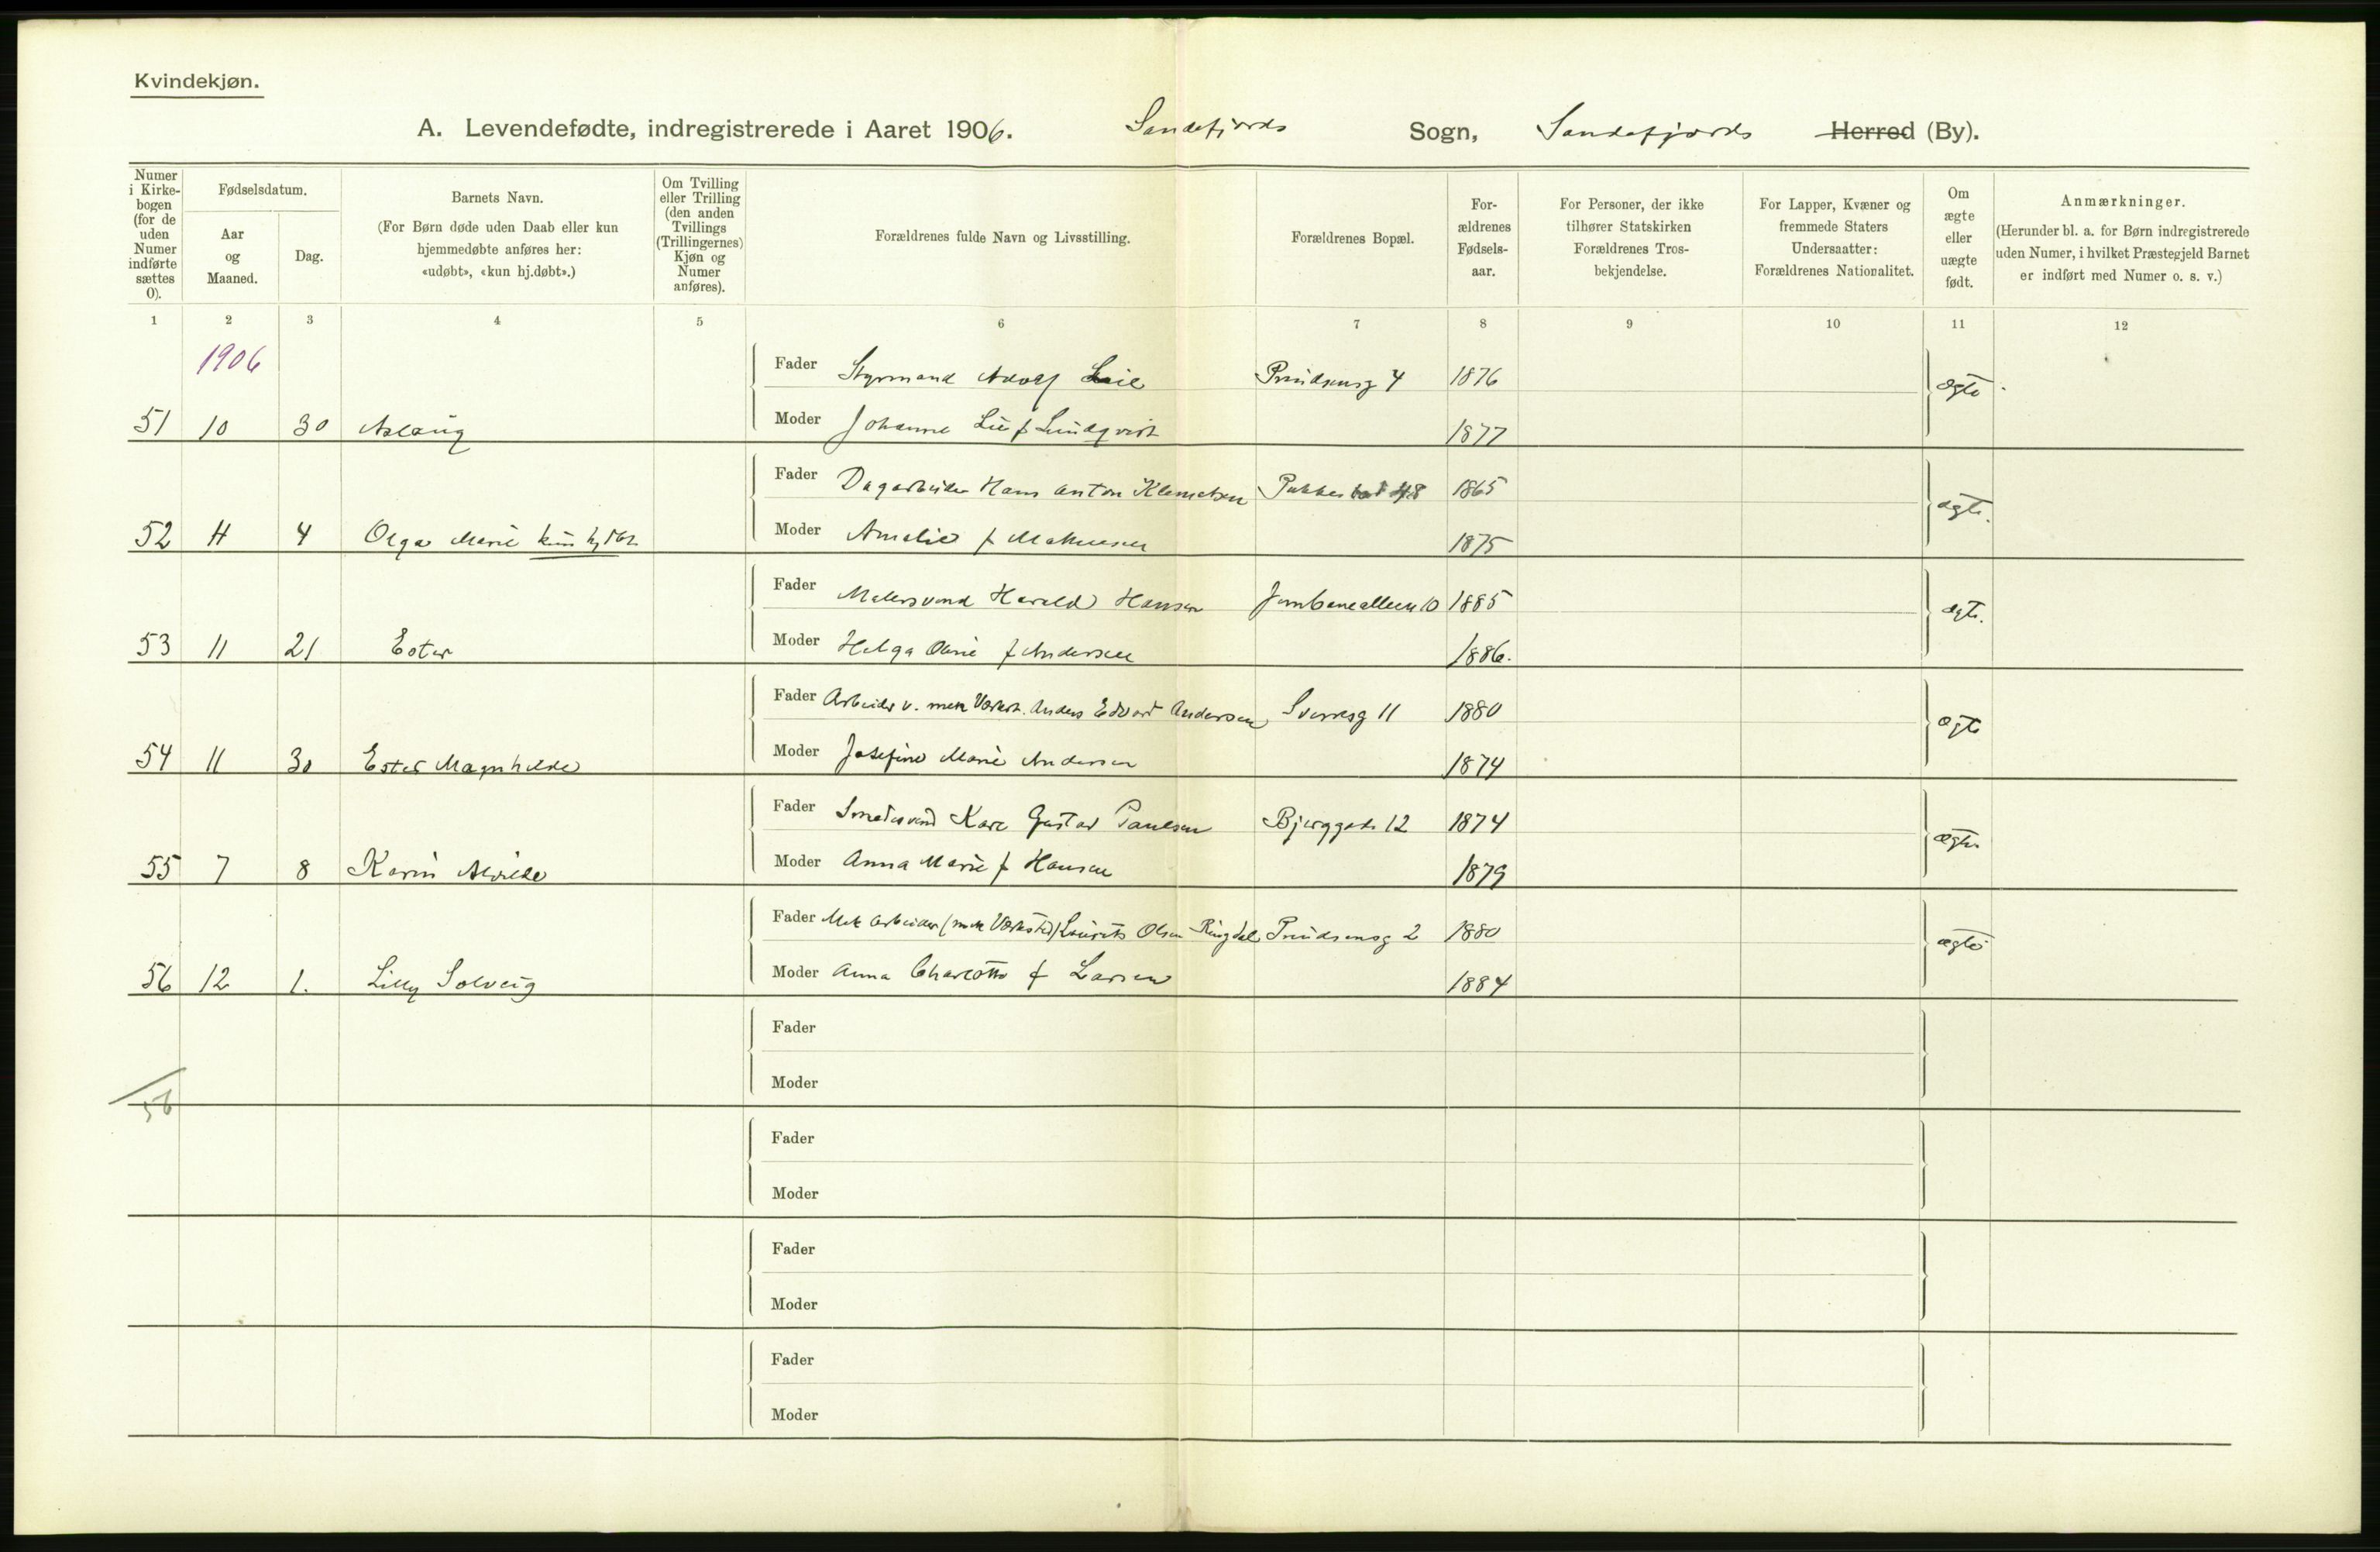 Kvindekjøn.
A. Levendefødte, indregistrerede i Aaret 1906. Sandefjords Sogn, Sandefjords Herred (By).
Numer i Kirkebogen (for de uden Numer indførte sættes 0).
Fødselsdatum.
Aar og Maaned.
Dag.
Barnets Navn.
(For Børn døde uden Daab eller kun hjemmedøbte anføres her: «udøbt», «kun hj.døbt».)
Om Tvilling eller Trilling (den anden Tvillings (Trillingernes) Kjøn og Numer anføres).
Forældrenes fulde Navn og Livsstilling.
Forældrenes Bopæl.
For-ældrenes Fødsels-aar.
For Personer, der ikke tilhører Statskirken Forældrenes Tros-bekjendelse.
For Lapper, Kvæner og fremmede Staters Undersaatter: Forældrenes Nationalitet.
Om ægte eller uægte født.
Anmærkninger.
(Herunder bl. a. for Børn indregistrerede uden Numer, i hvilket Præstegjeld Barnet er indført med Numer o. s. v.)
1 2 3 4 5 6 7 8 9 10 11 12
1906
Fader Styrmand Adolf Lie 4 1876 ægte
51 10 30 Aslaug Moder Johanne Lie f Lundqvist 1877
Fader Dagarbeider Hans Anton Klemetsen 48 1865 ægte.
52 11 4 Olga Marie kun hjdbt. Moder Amelie f 1875
Fader Malersvend Harald Hansen Jernbanealleen 10 1885 ægte.
53 11 21 Ester Moder Helga Olivie f Andersen 1886.
Fader Arbeider v. mek Værkst. Anders Edvart Andersen Sverresg 11 1880 ægte
54 11 30 Ester Magnhilde Moder Josefine Marie Andersen 1874
Fader Smedesvend Karl Gustav Paulsen Bjerggade 12 1874 ægte
55 7 8 Karin Alvilde Moder Anna Marie f Hansen 1879
Fader Mek Arbeider (mek Værksted) Laurits Olsen Ringdal 2 1880 ægte
56 12 1. Lilly Solveig Moder Anna Charlotte f Larsen 1884
Fader
Moder
56
Fader
Moder
Fader
Moder
Fader
Moder